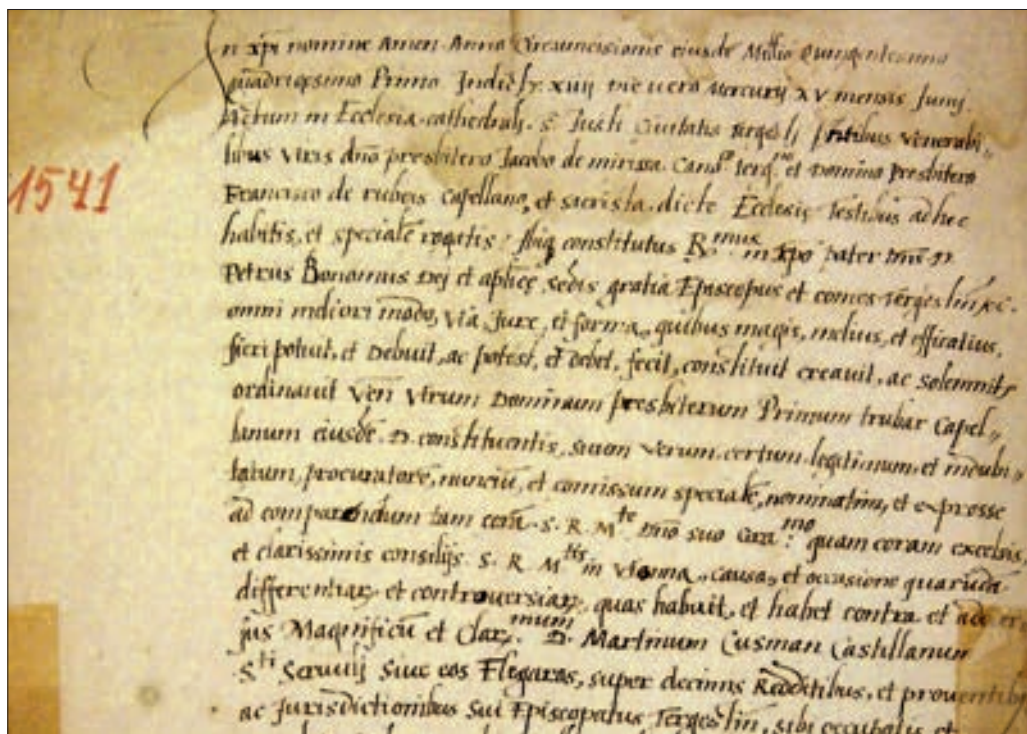 n xpi nomine Amen Anno Circuncisionis eiusdē Mill̄io Quingentesimo
quadragesimo Primo Indictē xiiij die uero Mercurij xv mensis Junij
Actum in Ecclesia cathedrali s. Justi Ciuitatis Tergesti p̄ntibus venerabi„
libus viris dn̄o presbitero Jacobo de mirissa Can.co terg.no et Domino presbitero
1541
Francisco de rubeis Capellano, et sacrista dicte Ecclesie testibus ad hec
habitis, et specialr̄ rogatis: Ibiq constitutus R.mus in xpo pater dn̄s D.
Petrus Bonomus Dej et aplicę sedis gratia Episcopus et comes Tergestin̄
omni meliori modo, via Jure, et forma, quibus magis, melius, et efficatius,
fieri potuit, et Debuit, ac potest, et debet, fecit, constituit creauit, ac solemnitr̄
ordinauit Ven̄ virum Dominum presbiterum Primum trubar Capel„
lanum eiusdē D. constituentis, suum verum certum legitimum et indubi„
tatum, procuratorē, nunciū, et comissum specialē, nominatim, et expresse
ad comparendum tam corā S. R. M.te dn̄o suo Gra.mo quam coram excelsis,
et clarissimis consilijs S. R. M.tis in vienna, causa, et occasione quarundā
differentiaꝝ et controuersiaꝝ, quas habuit, et habet contra et
Magnificū et Clar.mum D. Martinum Cusman Castillanum
S.ti Seruulj siue eos Flegaros, super decimis Redditibus, et prouentibus
ac Jurisdictionibus sui Episcopatus Tergestin̄, sibi occupatis et